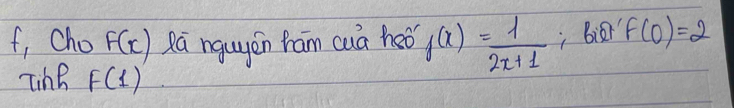 f, Cho F(x) là nguyên hàm của hsố f(x) = 1/(2x+1); biết F(0)=2
Tính F(1)